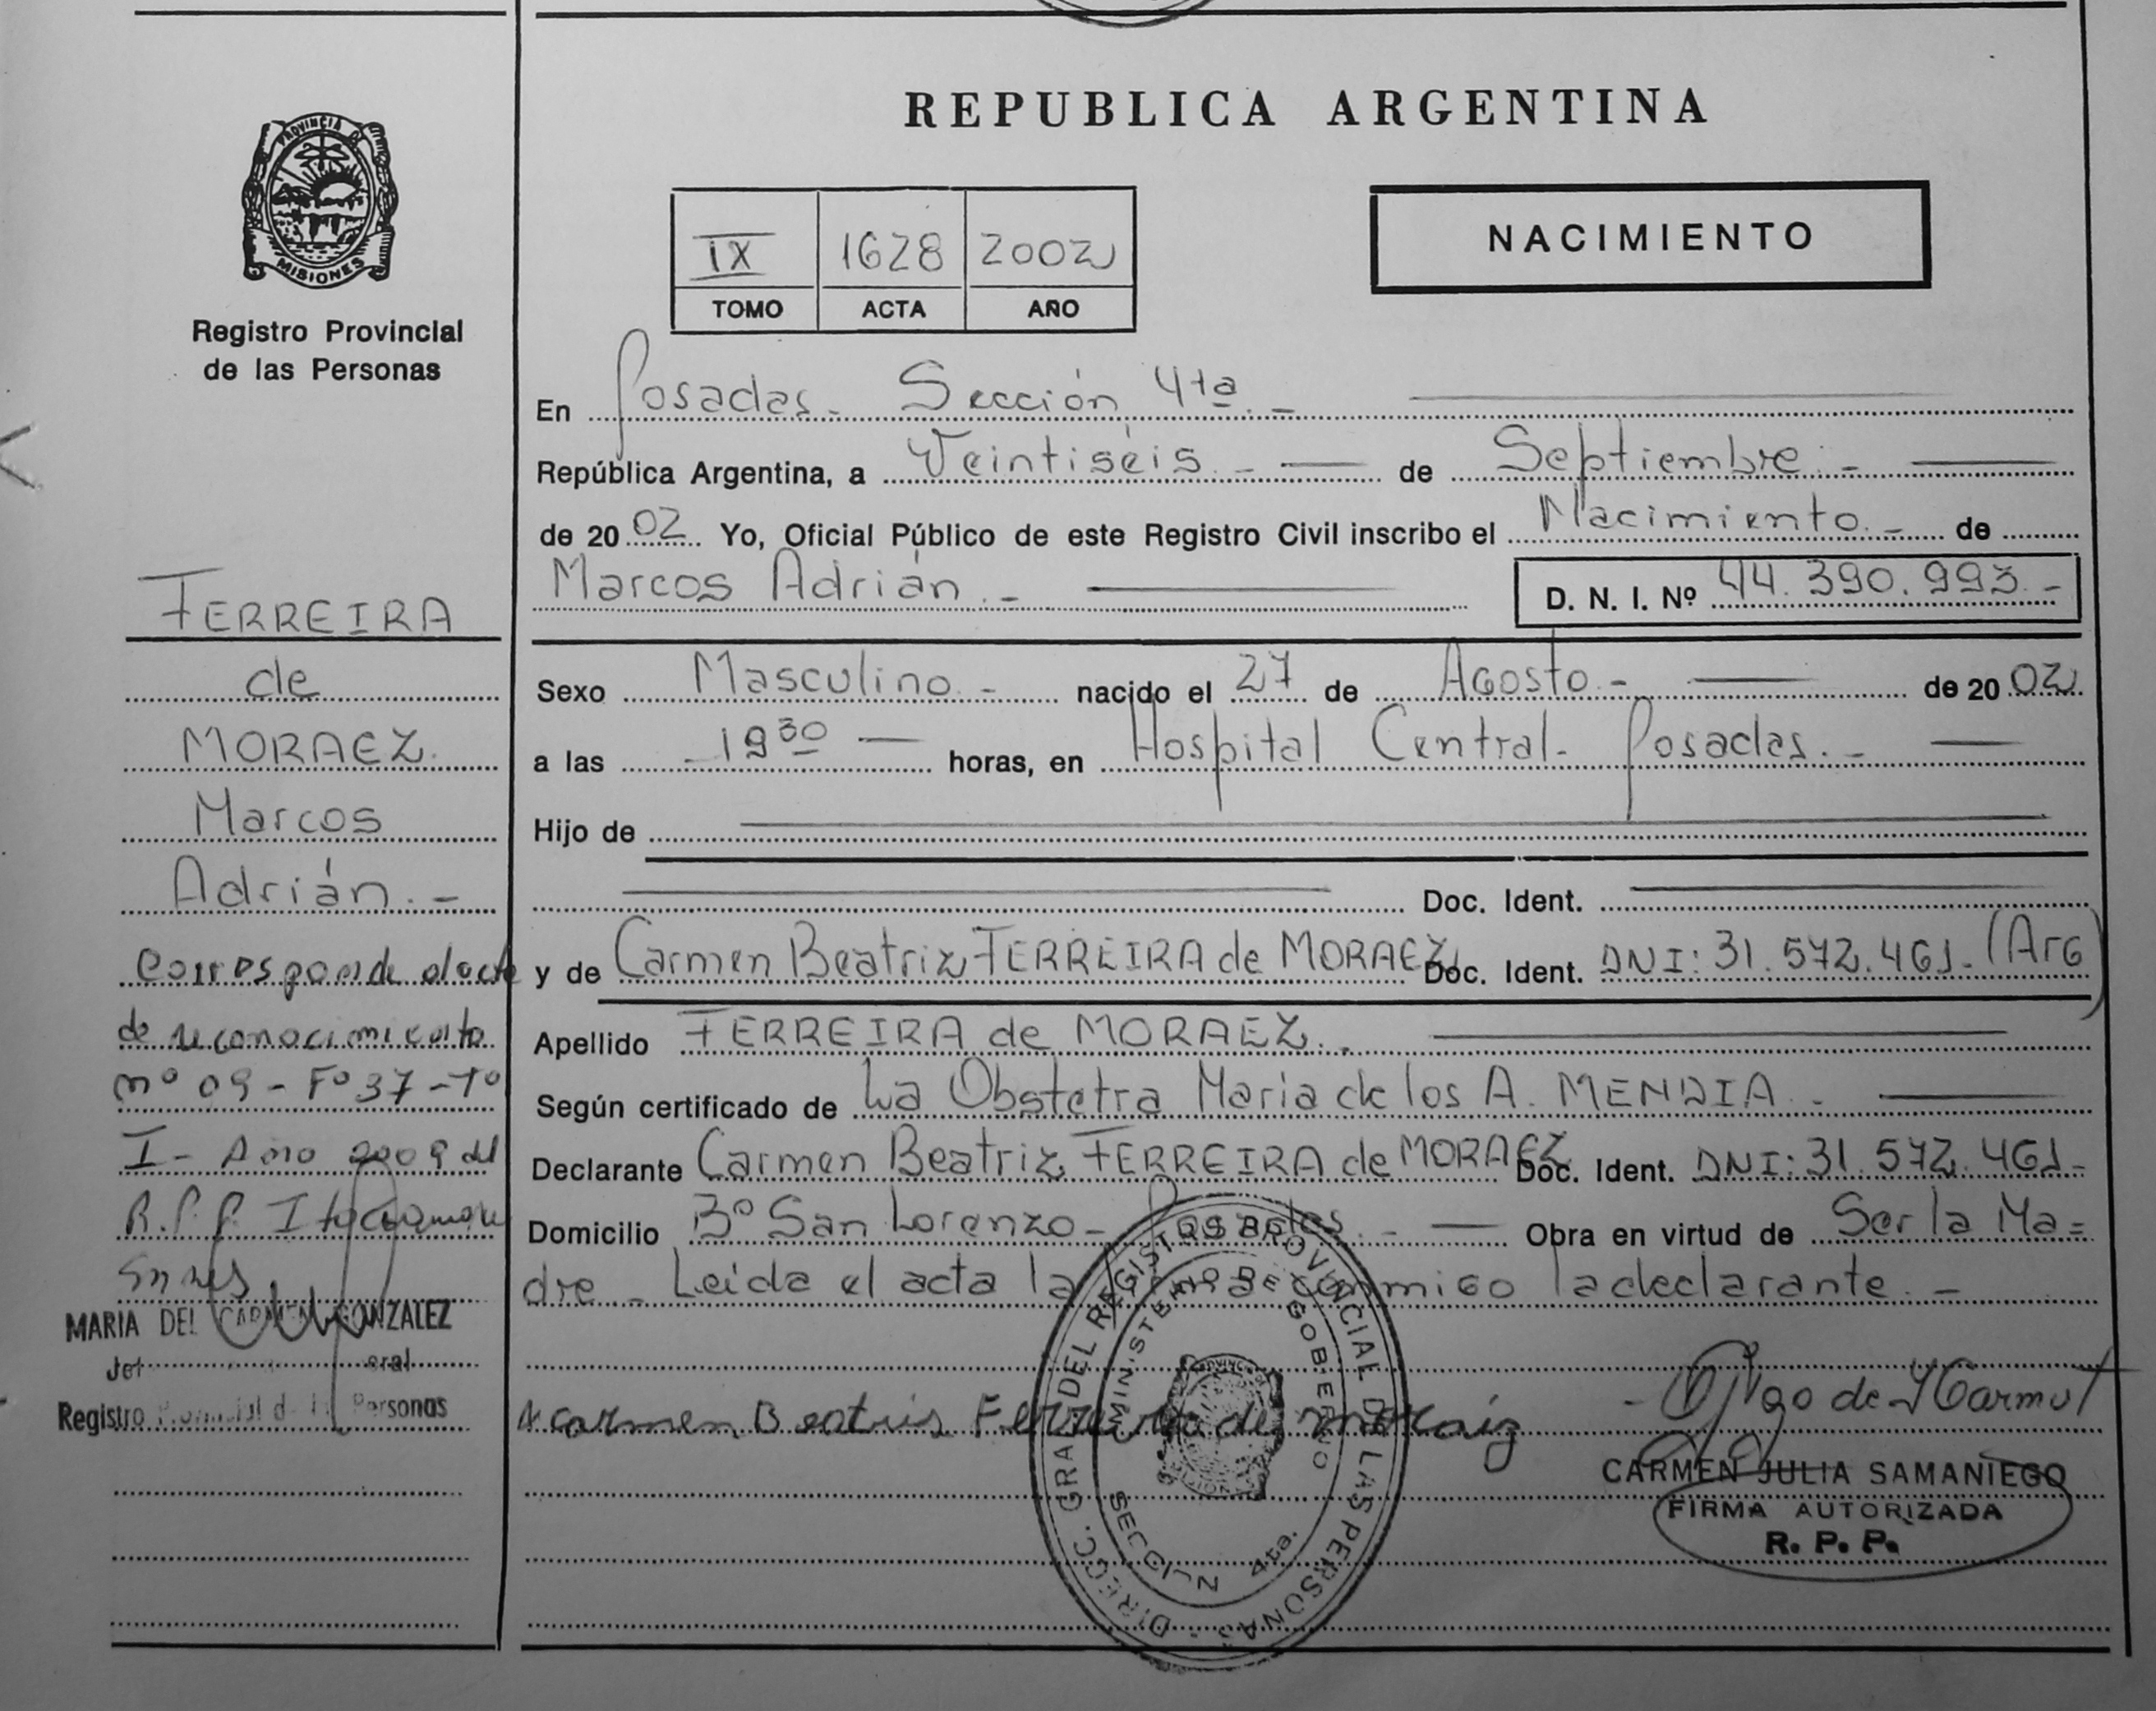 PROVINCIA D
MISIONES
Registro Provincial
de las Personas
FERREIRA
de
MORAEZ
Marcos
Adrián.-
Corresponde al acta
de reconocimiento
nº 09 - Fº 37 - Tº
I - Año 2009 del
R.P.P.
MARIA DEL CARMEN GONZALEZ
Registro Provincial de las Personas
REPUBLICA ARGENTINA
IX 1628 2002
TOMO ACTA AÑO
NACIMIENTO
En Posadas - Sección 4ta. -
República Argentina, a Veintiséis. - de Septiembre. -
de 2002 Yo, Oficial Público de este Registro Civil inscribo el Nacimiento. - de
Marcos Adrián. - D. N. I. Nº 44.390.993.-
Sexo Masculino - nacido el 27 de Agosto - de 2002
a las 19 30 horas, en Hospital Central - Posadas. -
Hijo de
Doc. Ident.
y de Carmen Beatriz FERREIRA de MORAEZ Doc. Ident. DNI: 31.572.461- (Arg)
Apellido FERREIRA de MORAEZ. .
Según certificado de La Obstetra Maria de los A. MENDIA. -
Declarante Carmen Beatriz FERREIRA de MORAEZ Doc. Ident. DNI: 31.572.461-
Domicilio Bº San Lorenzo - Posadas. - Obra en virtud de Ser la Ma=
dre - Leida el acta la firma conmigo la declarante. -
Carmen Beatris Ferreira de moraiz
CARMEN JULIA SAMANIEGO
FIRMA AUTORIZADA
R. P. P.
DIRECC. GRAL. DEL REGISTRO PROVINCIAL DE LAS PERSONAS
MINISTERIO DE GOBIERNO
SECCION 4ta.